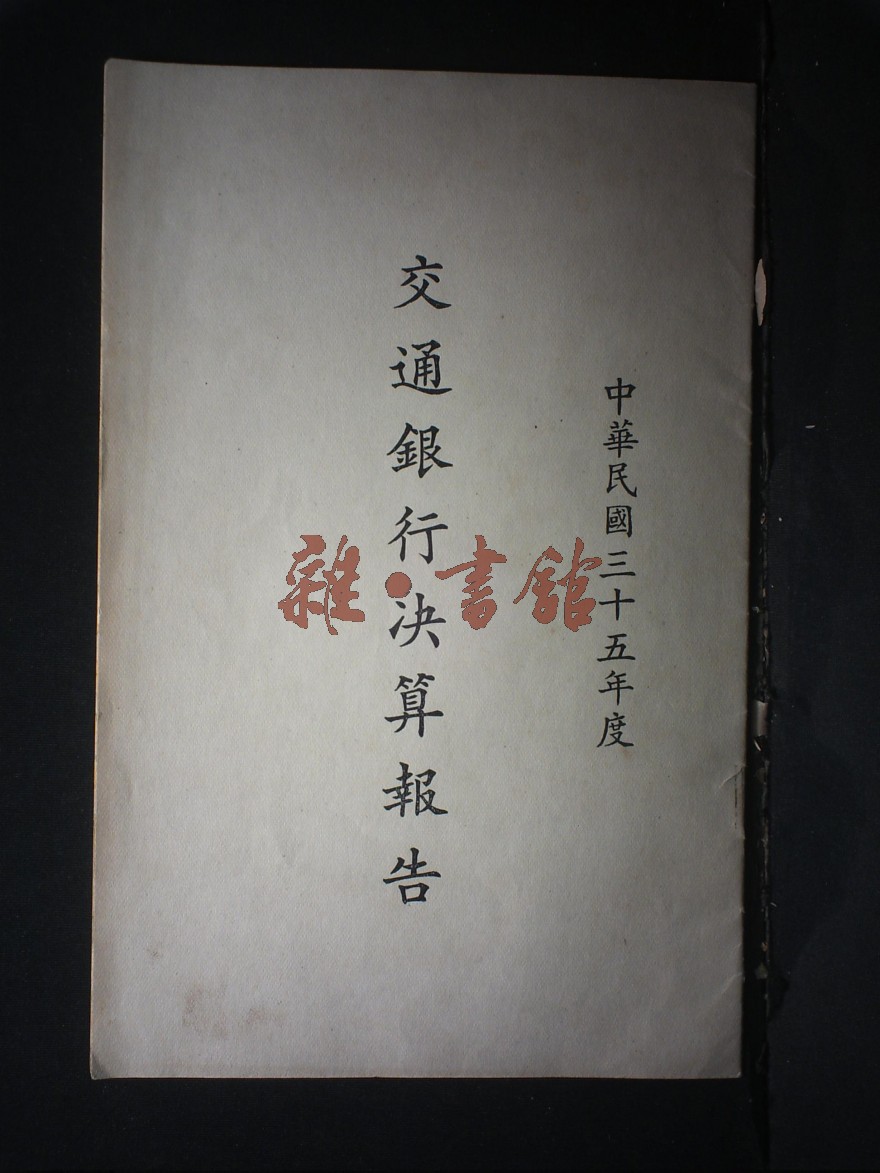 中華民國三十五年度
交通銀行決算報告
雜·書館